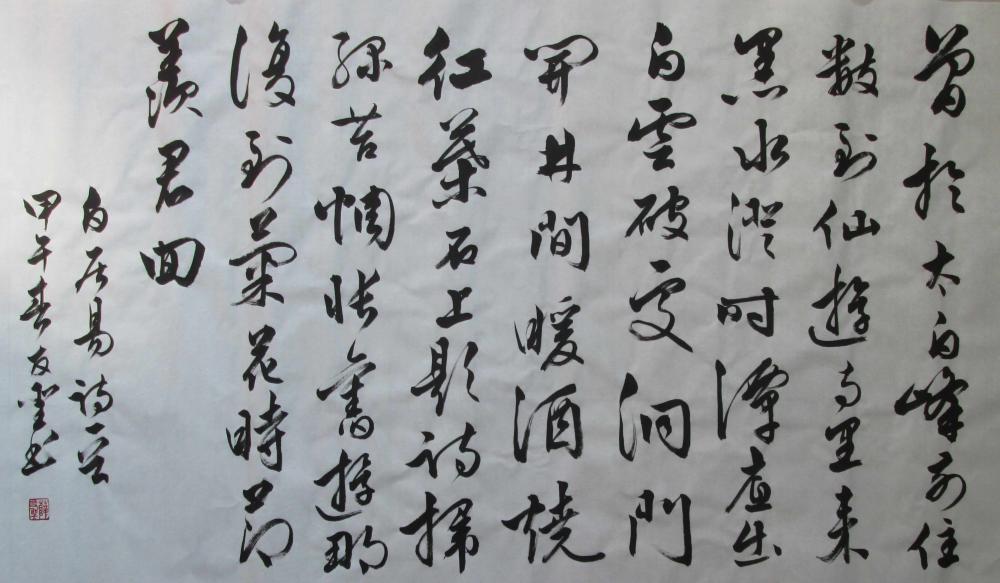 曾於太白峰前住
數到仙遊寺里来
黑水澄时潭底出
白雲破處洞門
開林間暖酒燒
紅葉石上題詩掃
綠苔惆悵舊遊那
復到菊花時節
羨君回
白居易詩一首
甲午春友书